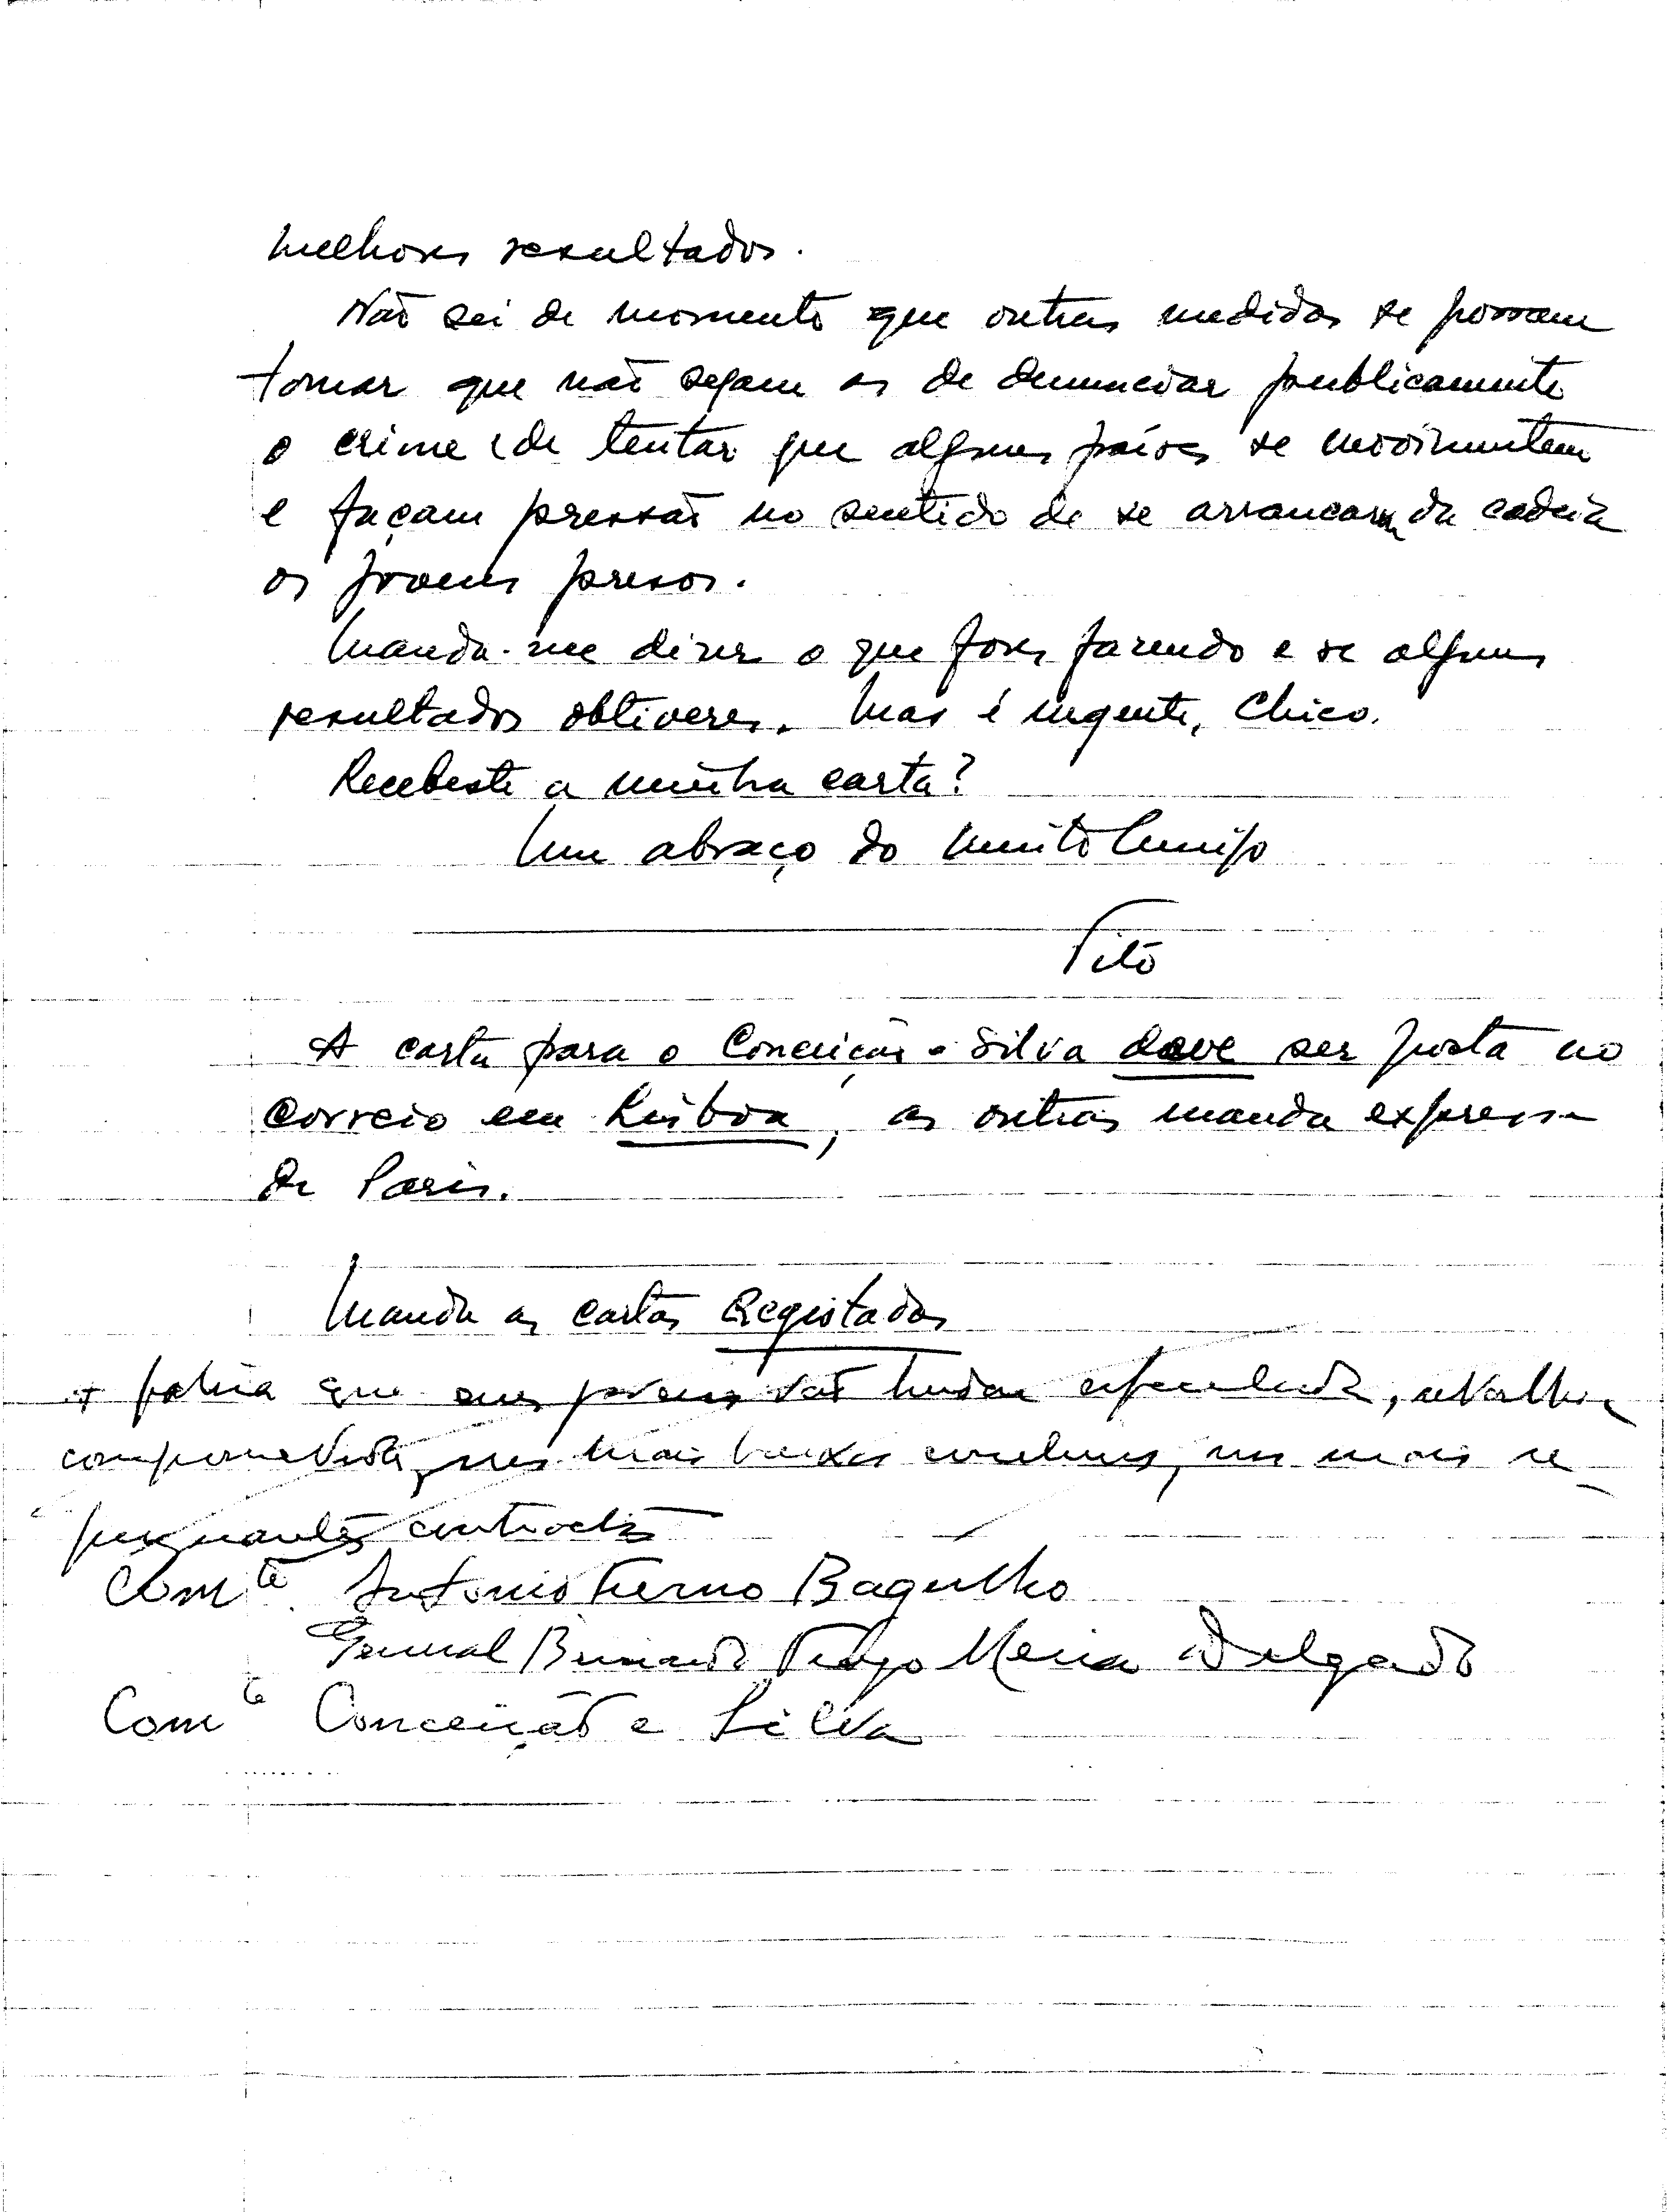 melhores resultados.
Não sei de momento que outras medidas se possam
tomar que não sejam as de denunciar publicamente
o crime e de tentar que alguns países se movimentem
e façam pressão no sentido de se arrancarem da cadeia
os jovens presos.
Manda-me dizer o que fores fazendo e se alguns
resultados obtiveres. Mas é urgente, Chico.
Recebeste a minha carta?
Um abraço do muito Amigo
Tito
A carta para o Conceição e Silva deve ser posta no
correio em Lisboa, as outras manda expressa
de Paris.
Manda as cartas Registadas
que jovens vão
nos mais baixos nos mais re
pugnantes
Comte. António Fermo Bagulho
General Bernardo Tiago Meira Delgado
Comte Conceição e Silva